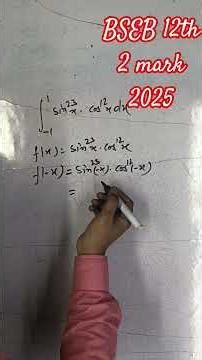 BSEB 12th
2 mark
2025
∫₋₁¹ sin²³x · cos¹²x dx
f(x) = sin²³x · cos¹²x
f(-x) = sin²³(-x) · cos¹²(-x)
=